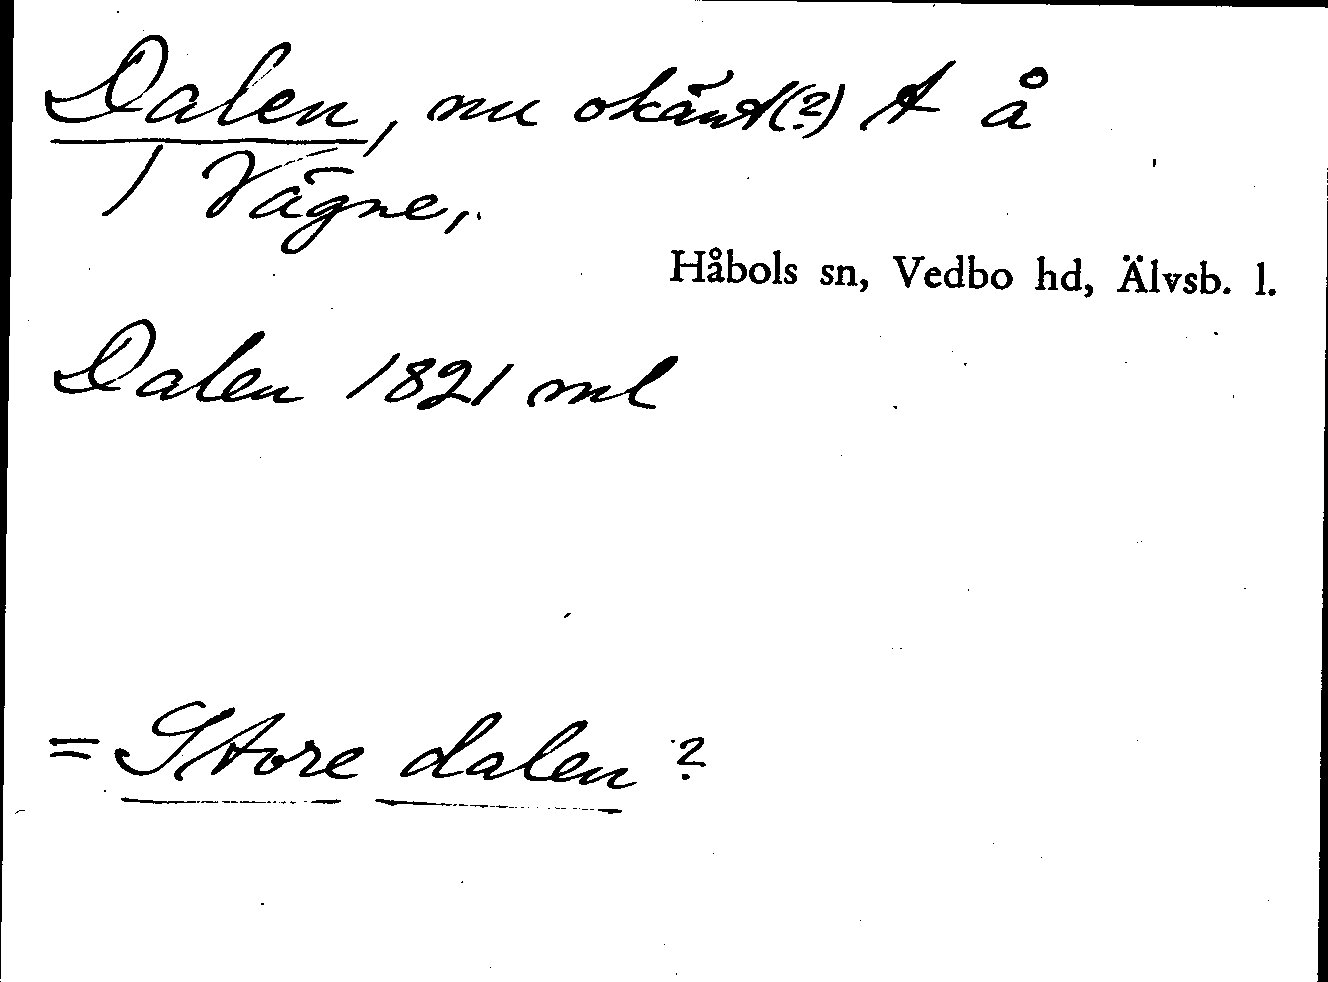 Dalen, nu okänt(?) t å
1 Vägne,
Håbols sn, Vedbo hd, Älvsb. l.
Dalen 1821 ml
= Store dalen ?